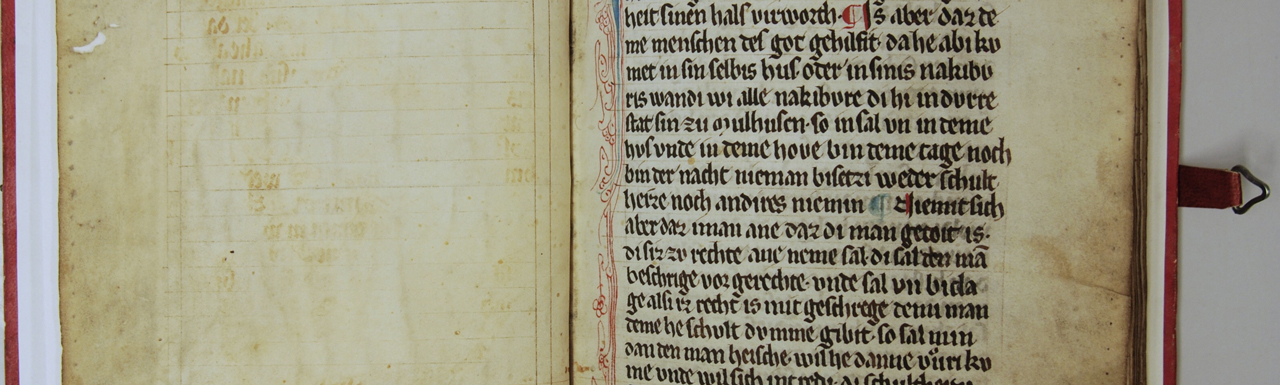 heit sinen hals virworch. Is aber daz de
me menschen des got gehilfit. da he abi ku
met in sin selbis hus. oder in sinis nakibu
ris wandi wi alle nakibure di hi in durre
stat sin zu mulhusen. so in sal vn in deme
hus unde in deme hove bin deme tage noch
bin der nacht nieman bisetzi weder schult
heize noch andires niemin
aber daz man ane daz di man getoit is.
di siz zu rechte ane neme sal. di sal den mā
beschrige vor gerechte. unde sal vn bicla
ge alsi iz recht is mit geschrege denu man
deme he schult dumme gibit. so sal min
dan den man heische. wil he danne vuri ku
me unde wil sich